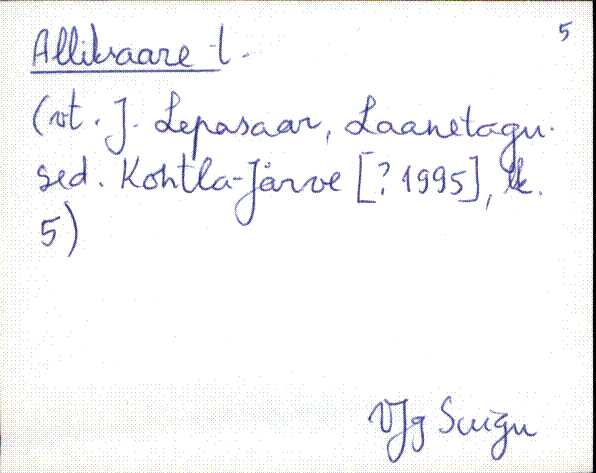 5
Alliksaare t.
(vt. J. Lepasaar, Laanetagu-
sed. Kohtla-Järve [? 1995], lk.
5)
VJg Suigu